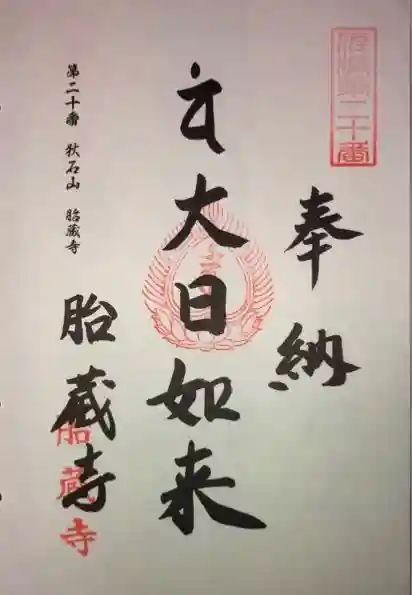 第二十番
奉納
大日如来
胎蔵寺
第二十番 狄石山 胎蔵寺
胎蔵寺